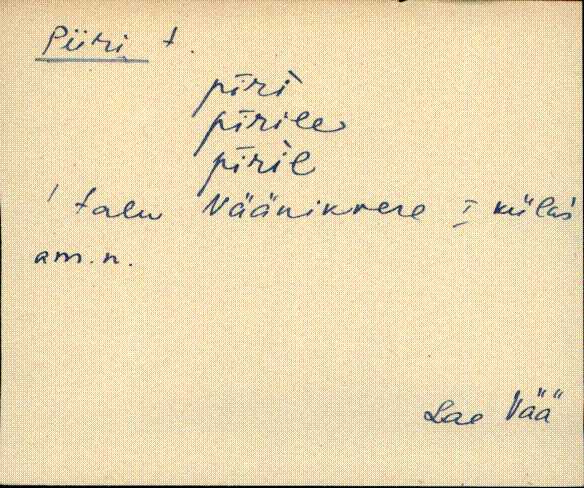 Piiri t.
pīrì
pīrìle
pīrìl
1 talu Väänikvere I külas
am. n.
Lae Vää